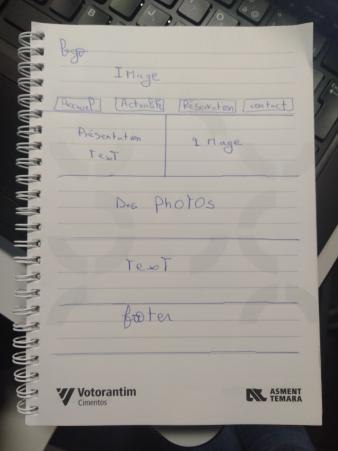 logo
Image
Accueil Activités Réservation contact
Présentation
Text
Image
Des photos
Text
footer
Votorantim
Cimentos
ASMENT
TEMARA